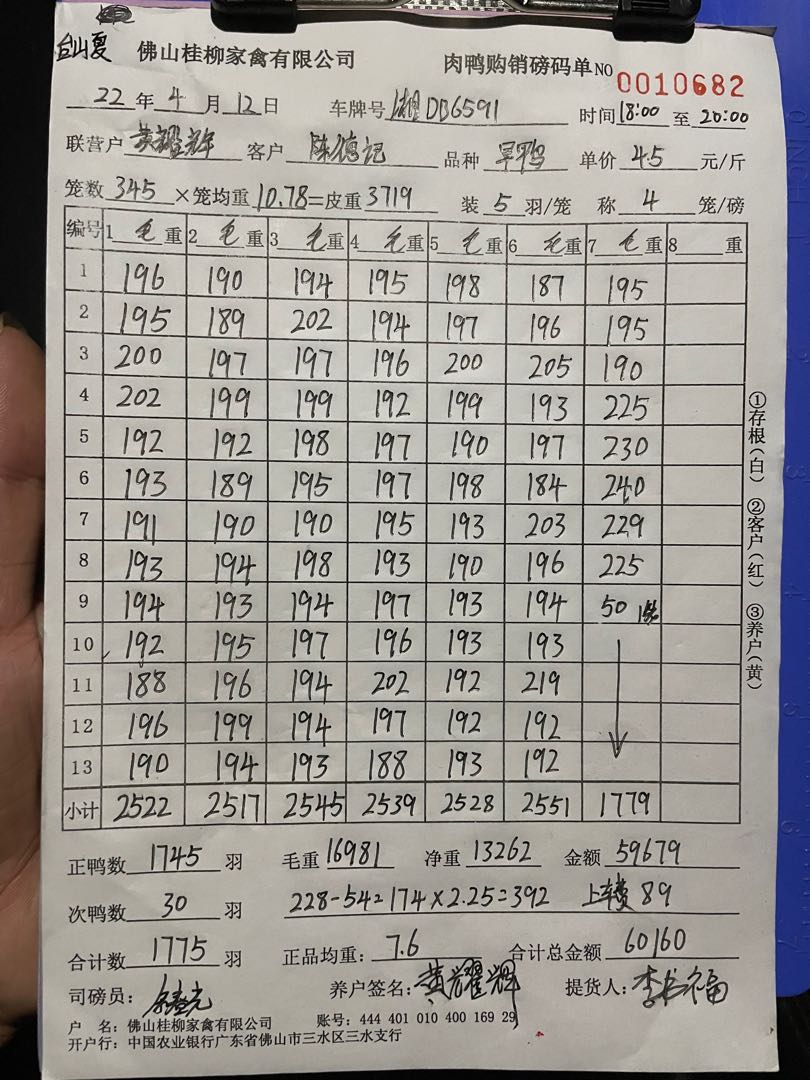 台山夏 佛山桂柳家禽有限公司 肉鸭购销磅码单 NO 0010682
22 年 4 月 12 日 车牌号 湘DB6591 时间 18:00 至 20:00
联营户 黄耀辉 客户 陈德记 品种 旱鸭 单价 4.5 元/斤
笼数 345 ×笼均重 10.78 =皮重 3719 装 5 羽/笼 称 4 笼/磅
编号 1 毛重 2 毛重 3 毛重 4 毛重 5 毛重 6 毛重 7 毛重 8 重
1 196 190 194 195 198 187 195
2 195 189 202 194 197 196 195
3 200 197 197 196 200 205 190
4 202 199 199 192 199 193 225
5 192 192 198 197 190 197 230
6 193 189 195 197 198 184 240
7 191 190 190 195 193 203 229
8 193 194 198 193 190 196 225
9 194 193 194 197 193 194 50
10 192 195 197 196 193 193
11 188 196 194 202 192 219
12 196 199 194 197 192 192
13 190 194 193 188 193 192
小计 2522 2517 2545 2539 2528 2551 1779
正鸭数 1745 羽 毛重 16981 净重 13262 金额 59679
次鸭数 30 羽 228-54=174×2.25=392 上车费 89
合计数 1775 羽 正品均重: 7.6 合计总金额 60160
司磅员: 养户签名: 黄耀辉 提货人: 李书福
户 名: 佛山桂柳家禽有限公司 账号: 444 401 010 400 169 29
开户行: 中国农业银行广东省佛山市三水区三水支行
①存根(白) ②客户(红) ③养户(黄)